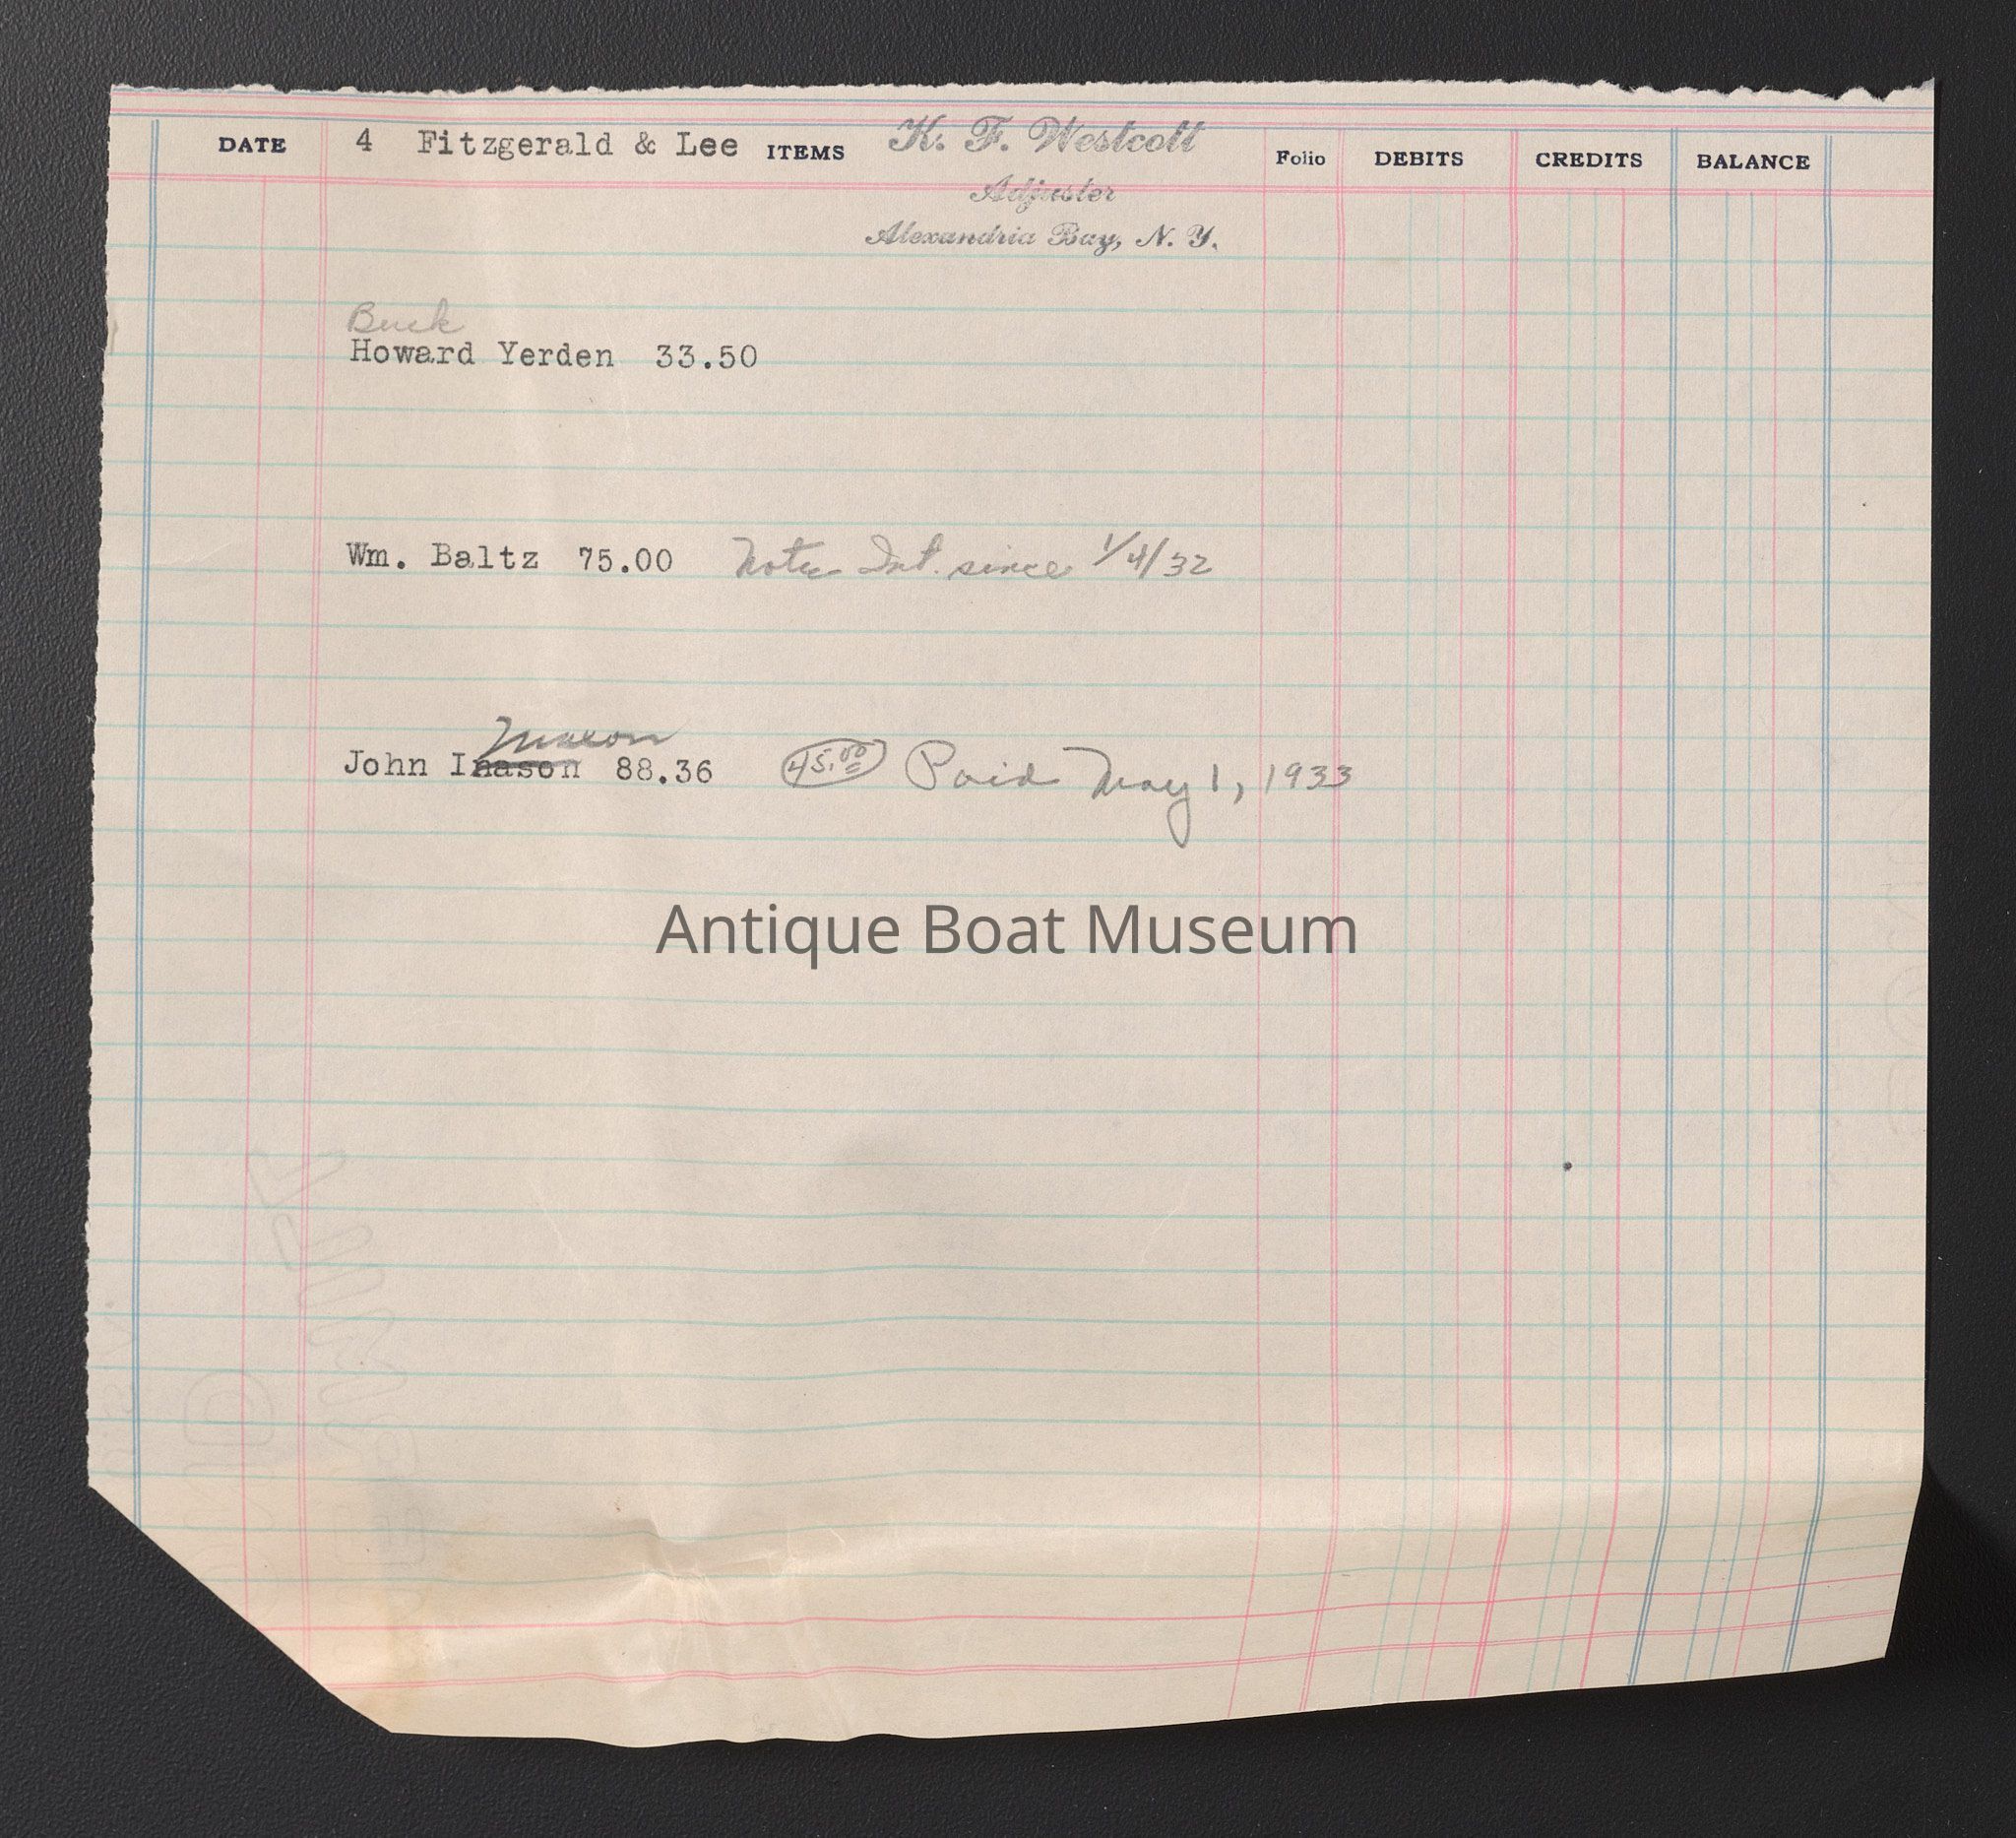 DATE 4 Fitzgerald & Lee ITEMS K. F. Westcott Folio DEBITS CREDITS BALANCE
Adjuster
Alexandria Bay, N. Y.
Buck
Howard Yerden 33.50
Wm. Baltz 75.00 Note Int. since 1/4/32
Maxon
John Inason 88.36 45.00 Paid May 1, 1933
Antique Boat Museum